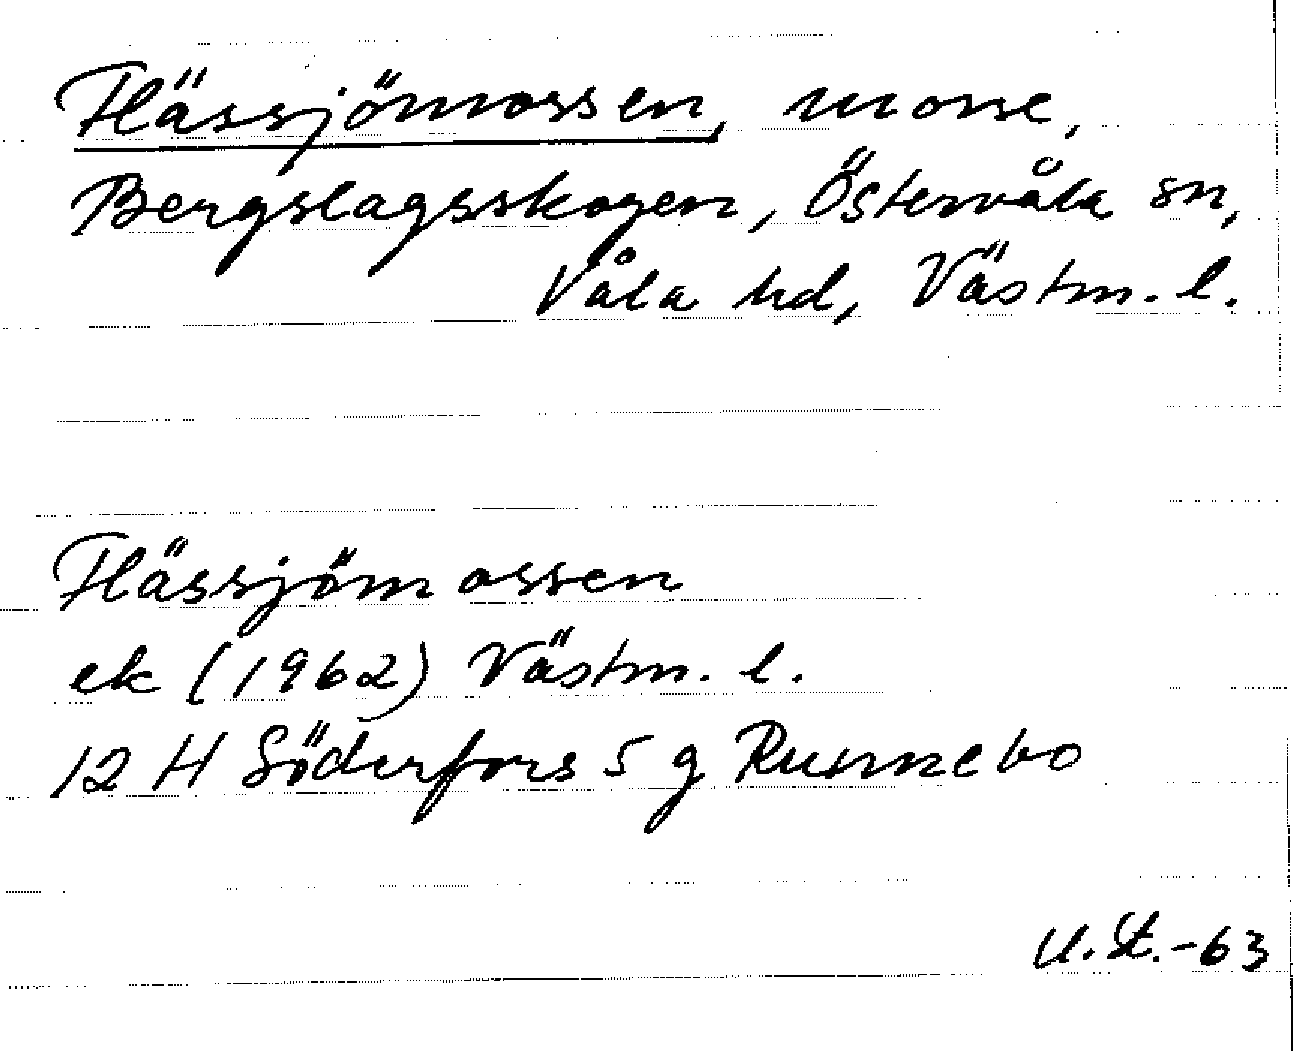 Flässjömossen, mosse,
Bergslagsskogen, Östervåla sn,
Våla hd, Västm. l.
Flässjömossen
ek (1962) Västm. l.
12 H Söderfors 5 g Runnebo
U. St. -63